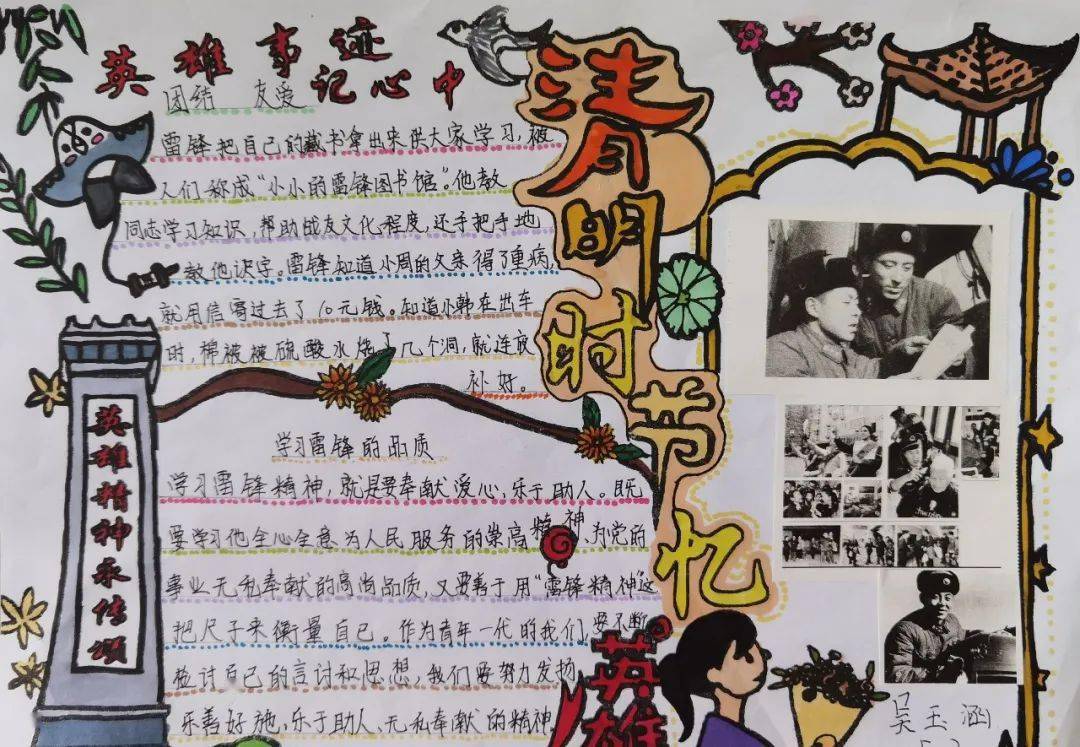 英雄事迹
记心中
团结 友爱
雷锋把自己的藏书拿出来供大家学习,被
人们称成“小小的雷锋图书馆”。他教
同志学习知识,帮助战友文化程度,还手把手地
教他识字。雷锋知道小周的父亲得了重病,
就用信寄过去了10元钱。知道小韩在出车
时,棉被被硫酸水烧了几个洞,就连夜
补好。
清明时节忆
英雄
学习雷锋的品质
学习雷锋精神,就是要奉献爱心、乐于助人。既
要学习他全心全意为人民服务的崇高精神,为党的
事业无私奉献的高尚品质,又要善于用“雷锋精神”这
把尺子来衡量自己。作为青年一代的我们,要不断
检讨自己的言讨和思想,我们要努力发扬
乐善好施,乐于助人、无私奉献的精神
英雄精神永传颂
吴玉涵